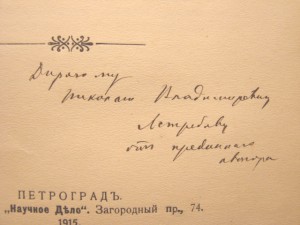 Дорогому
Николаю Владимировичу
Ястребову
отъ преданнаго
автора
ПЕТРОГРАДЪ.
„Научное Дѣло“. Загородный пр., 74.
1915.